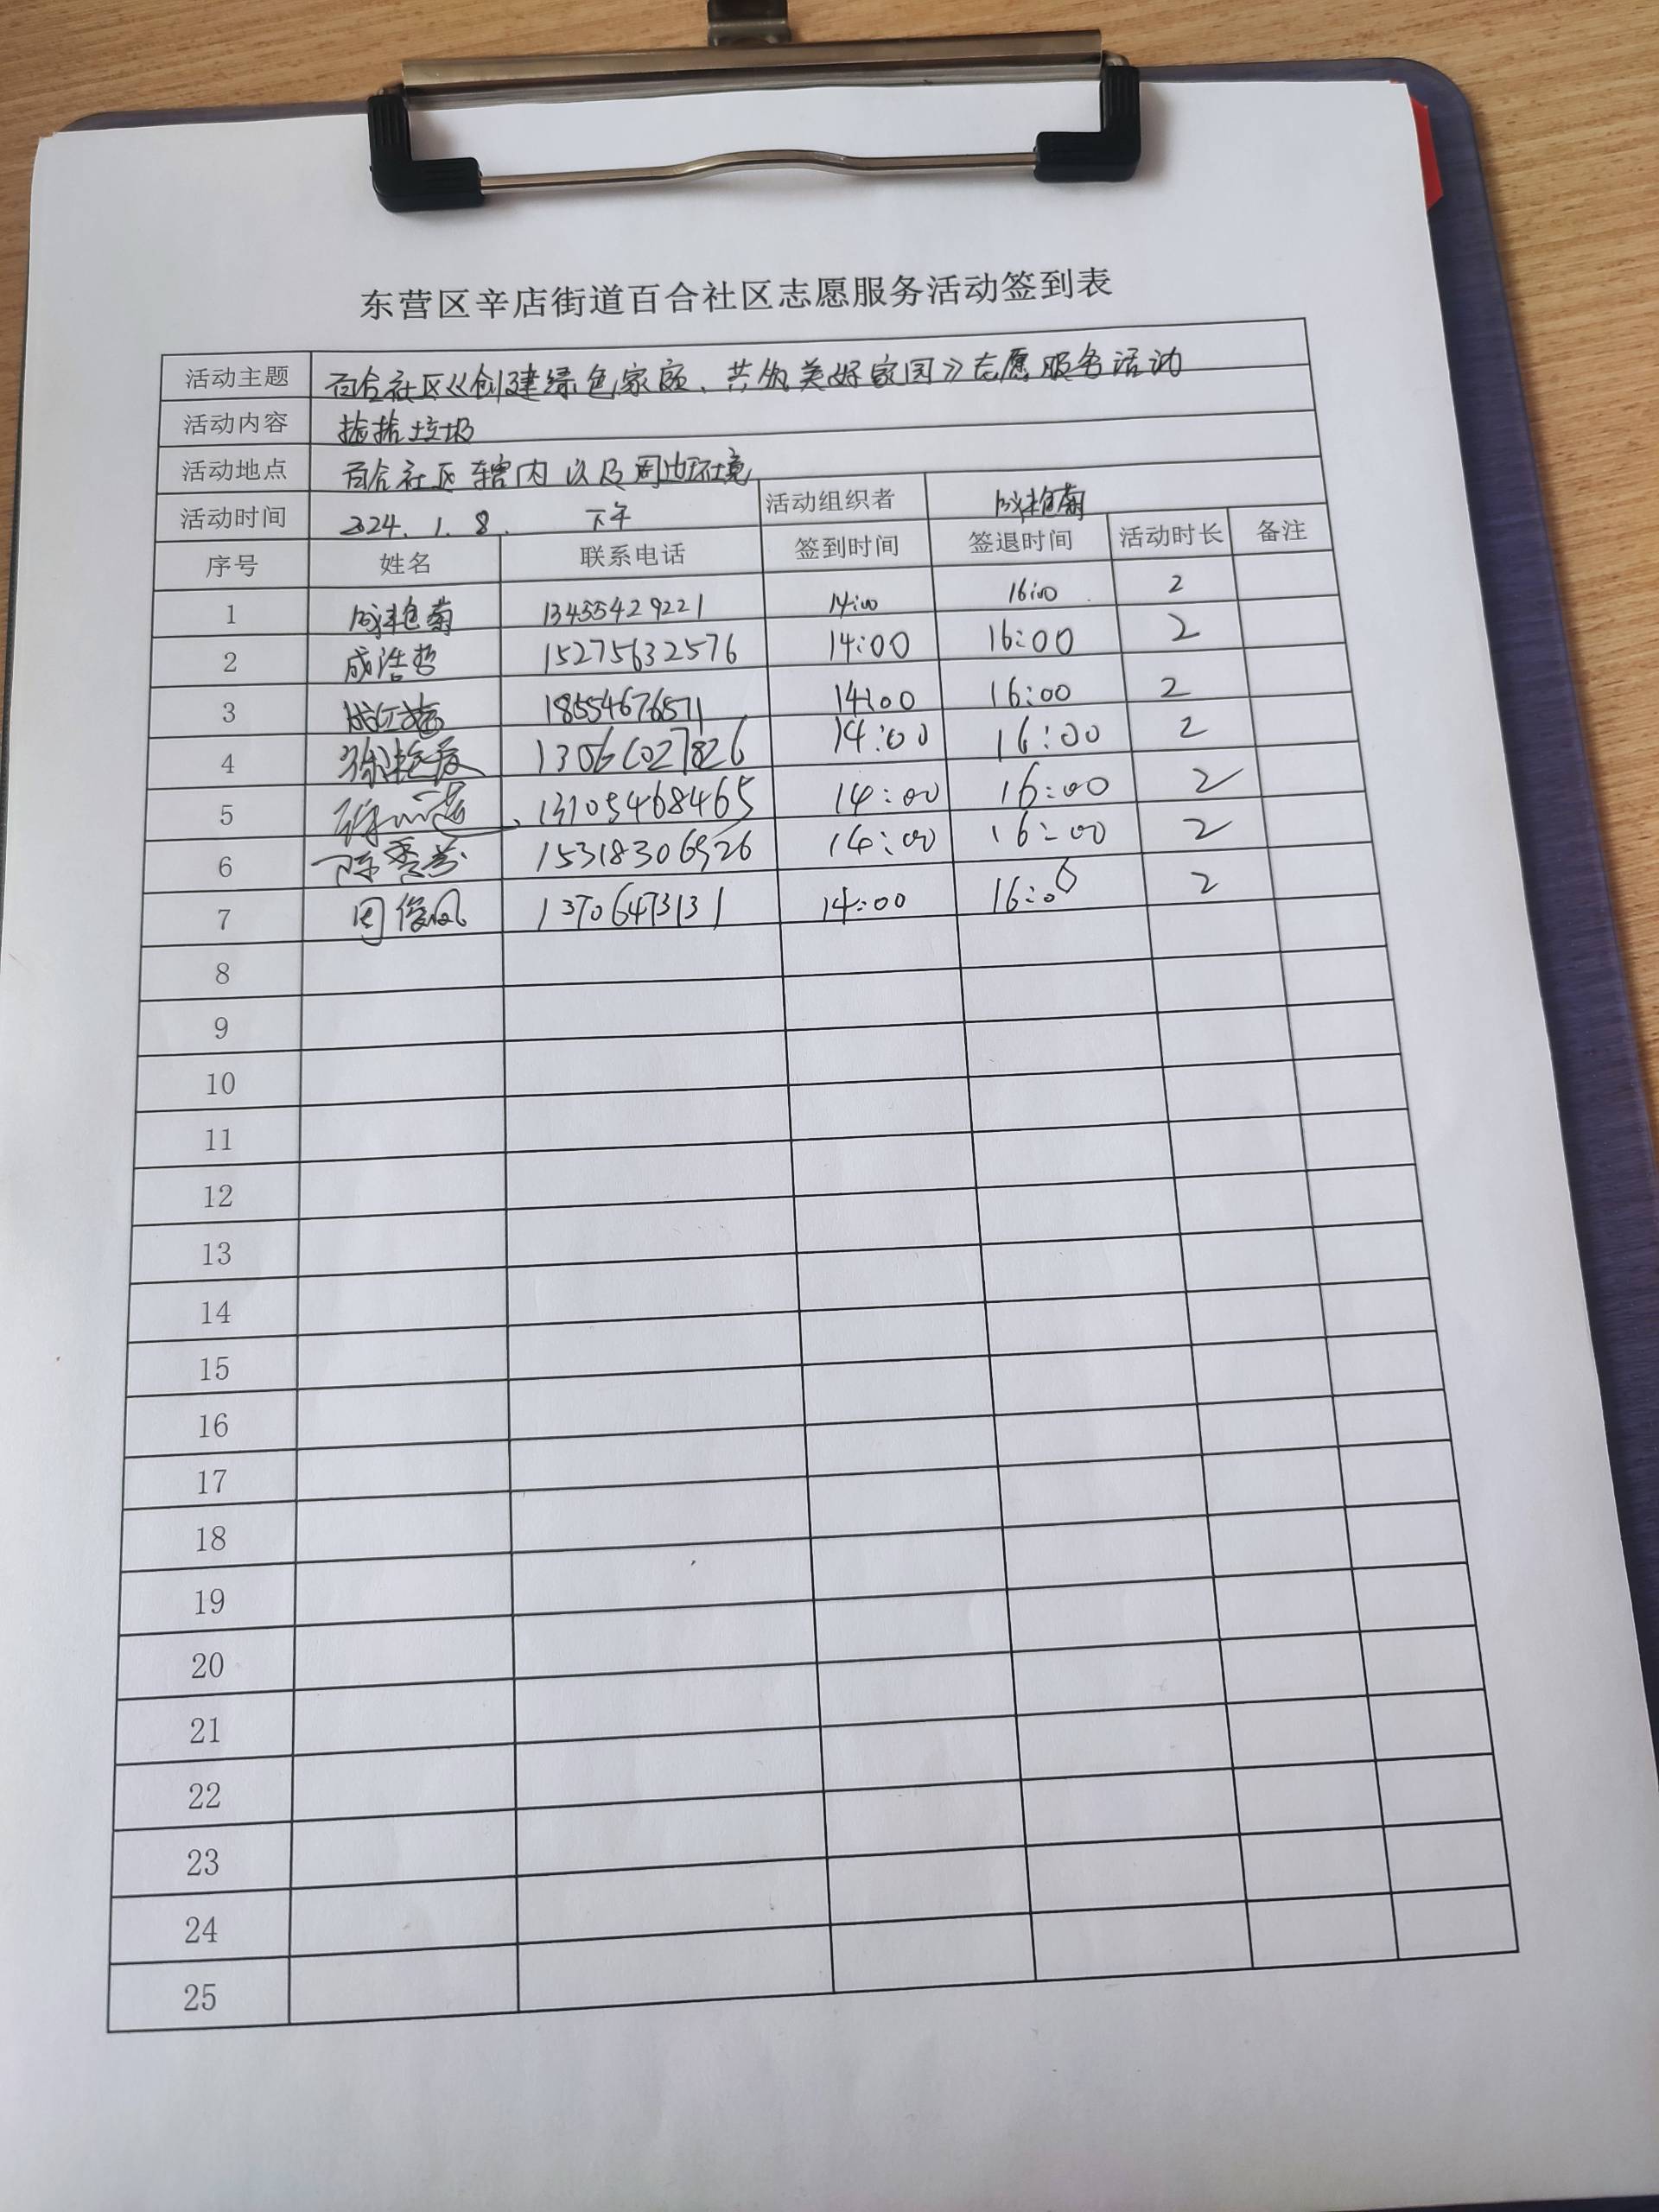 东营区辛店街道百合社区志愿服务活动签到表
活动主题 百合社区《创建绿色家庭、共筑美好家园》志愿服务活动
活动内容 捡拾垃圾
活动地点 百合社区辖内以及周边环境
活动时间 2024.1.8. 下午 活动组织者 成艳菊
序号 姓名 联系电话 签到时间 签退时间 活动时长 备注
1 成艳菊 13455429221 14:00 16:00 2
2 成浩哲 15275632576 14:00 16:00 2
3 18554676571 14:00 16:00 2
4 徐艳霞 13066027826 14:00 16:00 2
5 13105468465 14:00 16:00 2
6 陈秀芬 15318306926 14:00 16:00 2
7 周俊凤 13706473131 14:00 16:00 2
8
9
10
11
12
13
14
15
16
17
18
19
20
21
22
23
24
25